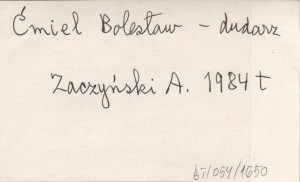 Ćmiel Bolesław – dudarz
Zaczyński A. 1984 t
bT/054/1650